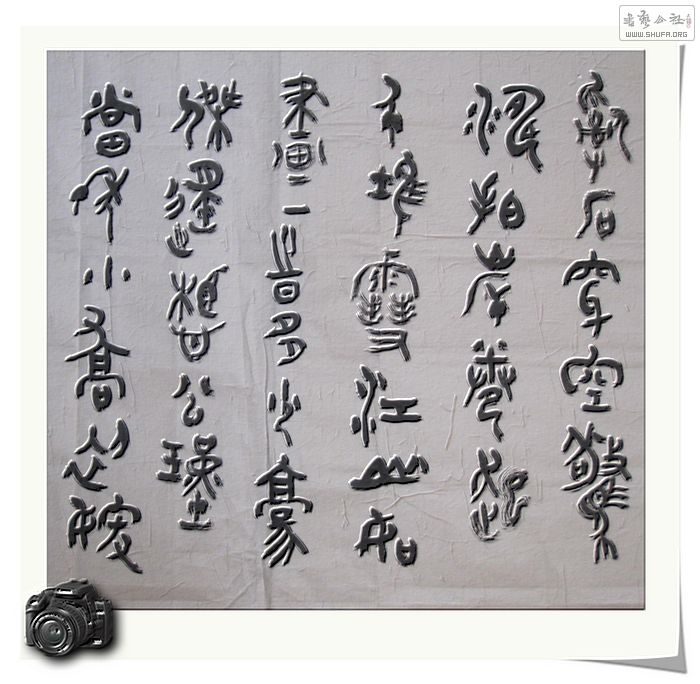 亂石穿空驚
濤拍岸卷起
千堆雪江山如
畫一時多少豪
傑遙想公瑾
當年小喬初嫁
書藝公社
WWW.SHUFA.ORG